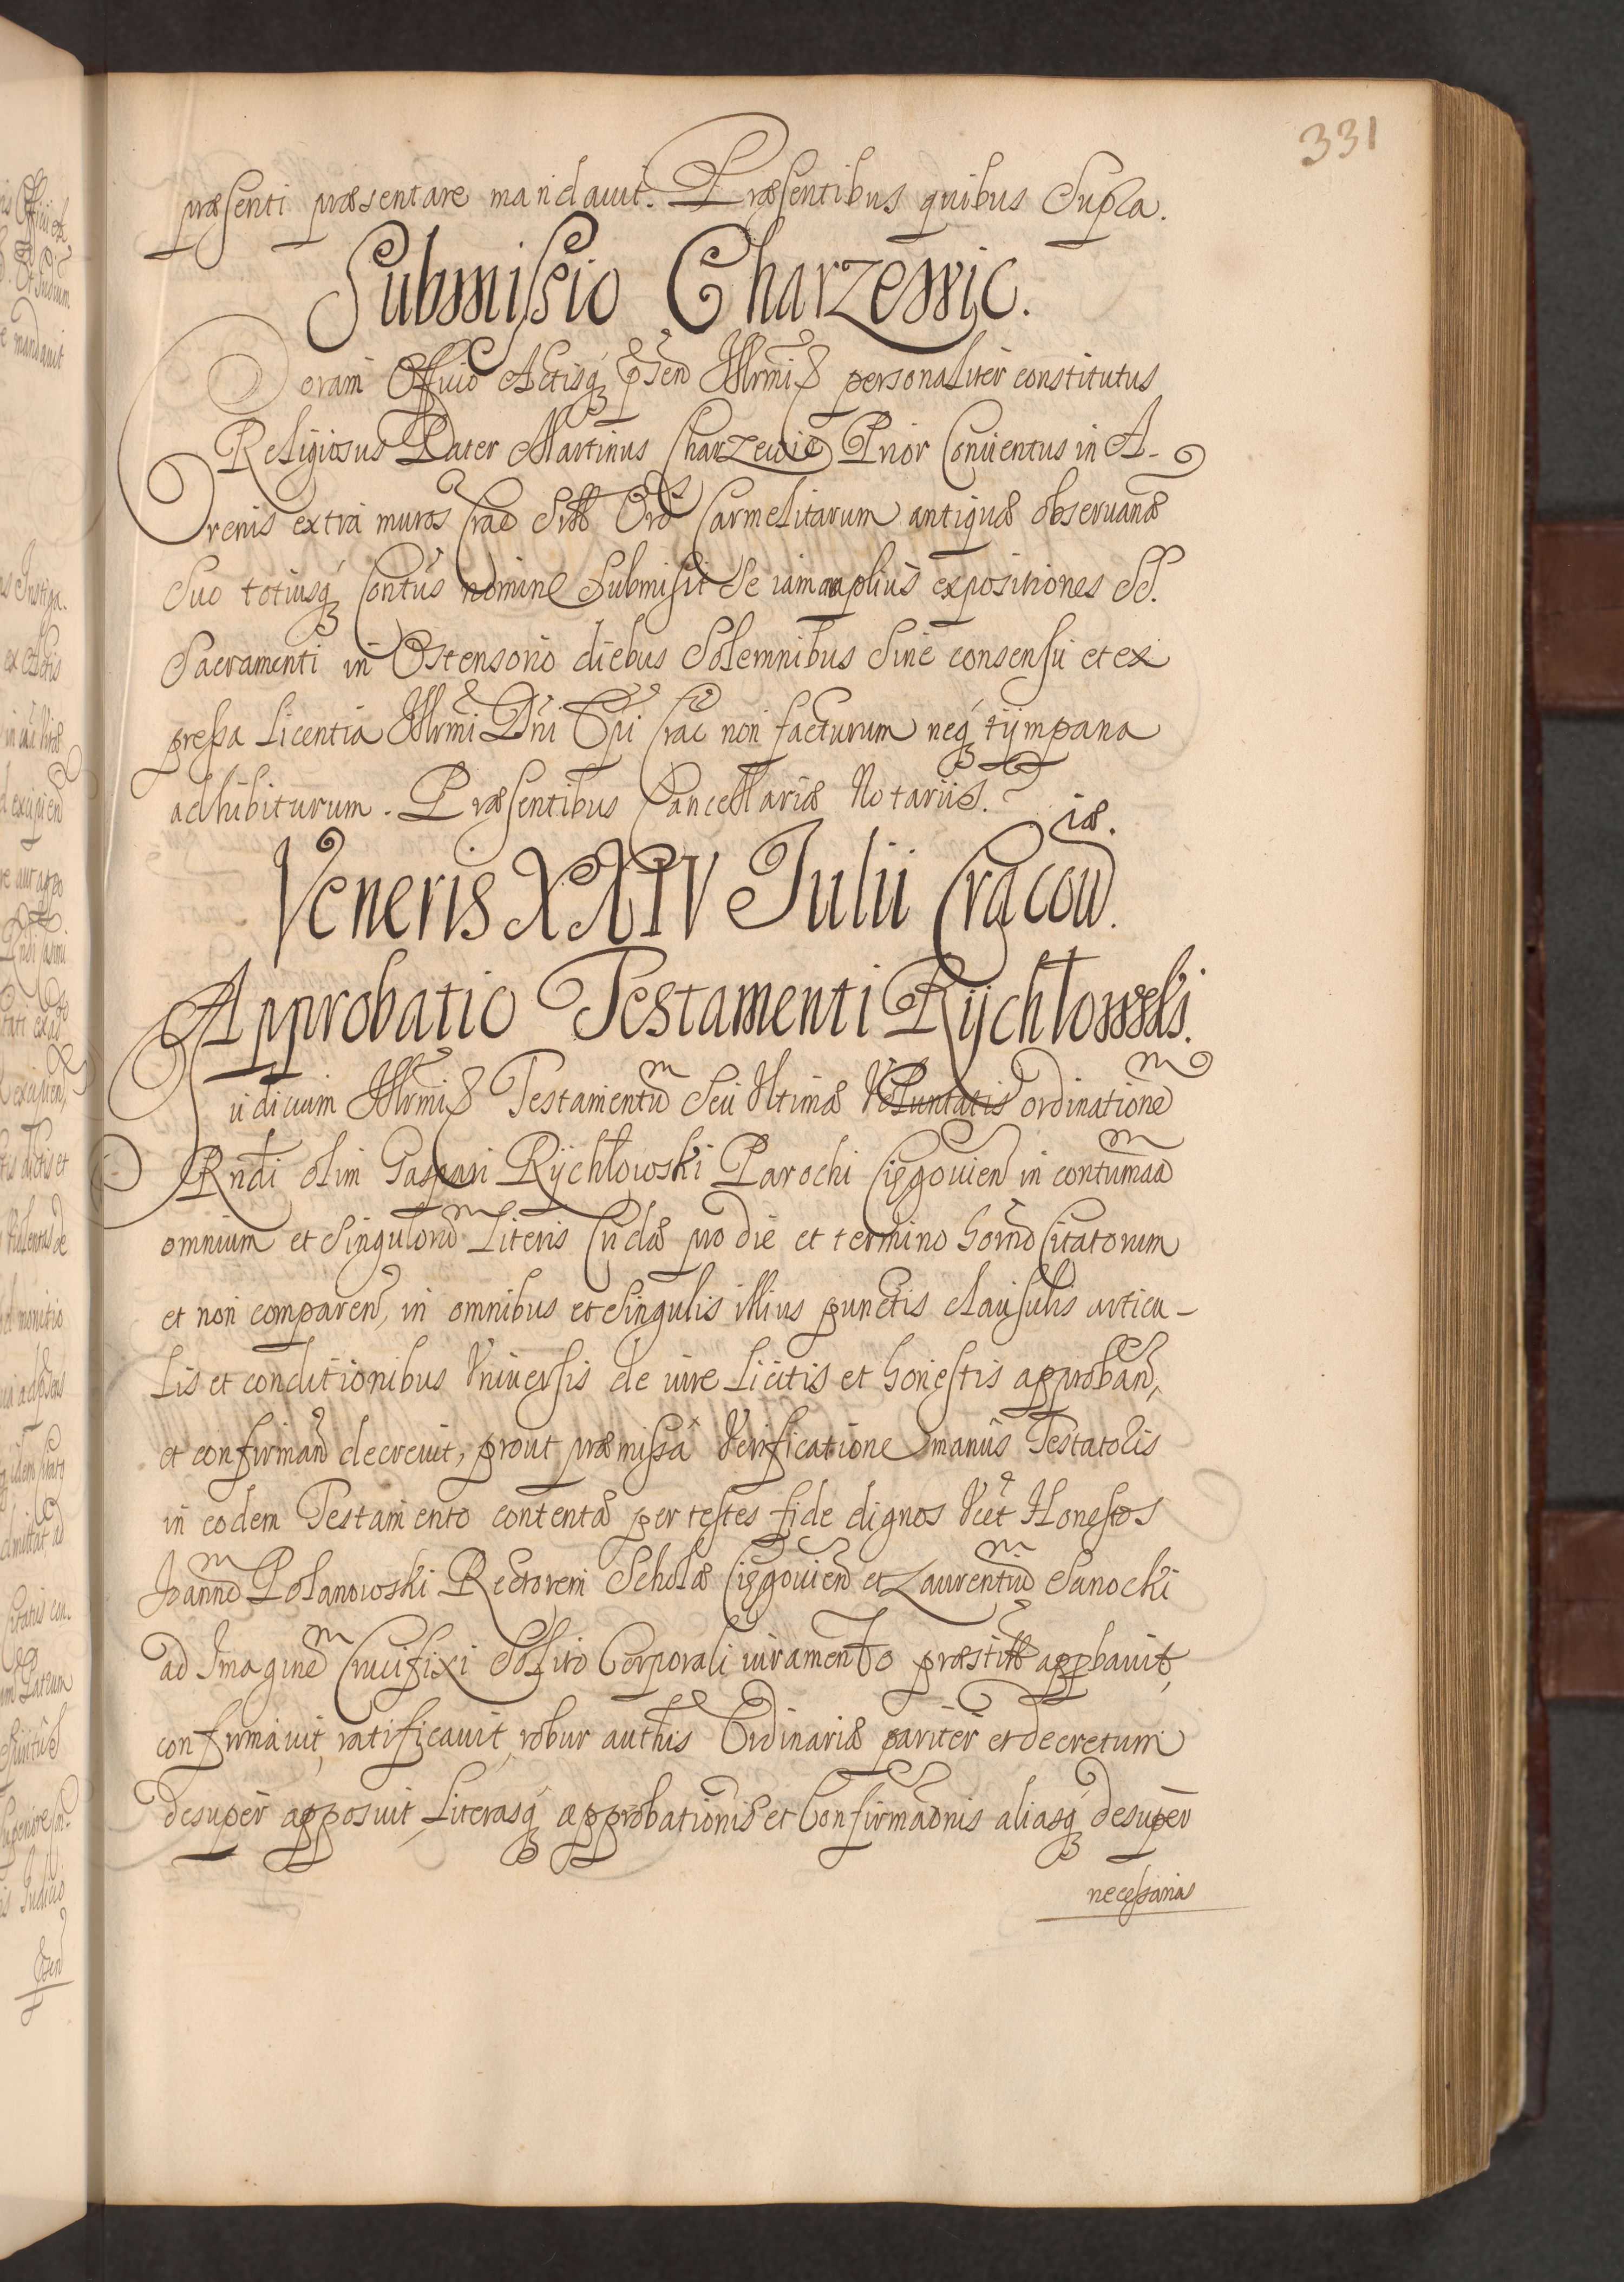 331
præsenti præsentare mandavit. Præsentibus quibus Supra.
Submissio Charzewic.
Coram Officio Actisq́ꝫ p̃sen Illrmi personaliter constitutus
Religiosus Pater Martinus Charzewic Prior Conventus in A-
renis extra muros Crac Ord Carmelitarum antiquæ observanæ
Suo totiusq́ꝫ Contus nomine Submisit Se iam amplius expositiones SS.
Sacramenti in Ostensorio diebus Solemnibus Sine consensu et ex
pressa Licentia Illrmi Dni Epi Crac non facturum neq́ꝫ tÿmpana
adhibiturum. Præsentibus Cancellariæ Notariis.
Veneris XXIV Julii Cracov iæ.
Approbatio Testamenti Rÿchłowski.
Iudicium Illrmi Testamentu Seu Ultimæ Voluntatis ordinatione
Rndi olim Gaspari Rÿchłowski Parochi Cięgovien in contumaa
omnium et Singuloru Literis Cudæ pro die et termino horno Citatorum
et non comparen, in omnibus et Singulis illius punctis clausulis articu-
lis et conditionibus Universis de iure Licitis et honestis approban,
et confirman decrevit, prout præmissâ Verificatione manûs Testatoris
in eodem Testamento contentâ per testes fide dignos Vcet Honestos
Joanne Polanowski Rectorem Scholæ Cięgovien et Laurentiu Sanocki
ad Imagine Crucifixi Solito Corporali iuramento præstitt appbavit,
confirmavit, ratificavit, robur authis Ordinariæ pariter et decretum
desuper apposuit, Literasq́ꝫ approbationis et Confirmaonis aliasq́ꝫ desuper
necessarias